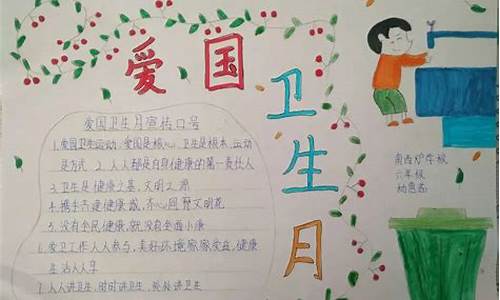 爱国
卫生月
爱国卫生月宣传口号
1.爱国卫生运动,爱国是核心,卫生是根本,运动
是方式 2.人人都是自身健康的第一责任人
3.卫生是健康之基,文明之源
4.携手共建健康城,齐心同育文明花
5.没有全民健康,就没有全面小康
6.爱卫工作人人参与,美好环境家家受益,健康
生活人人享
7.人人讲卫生,时时讲卫生,处处讲卫生
南西炉学校
六年级